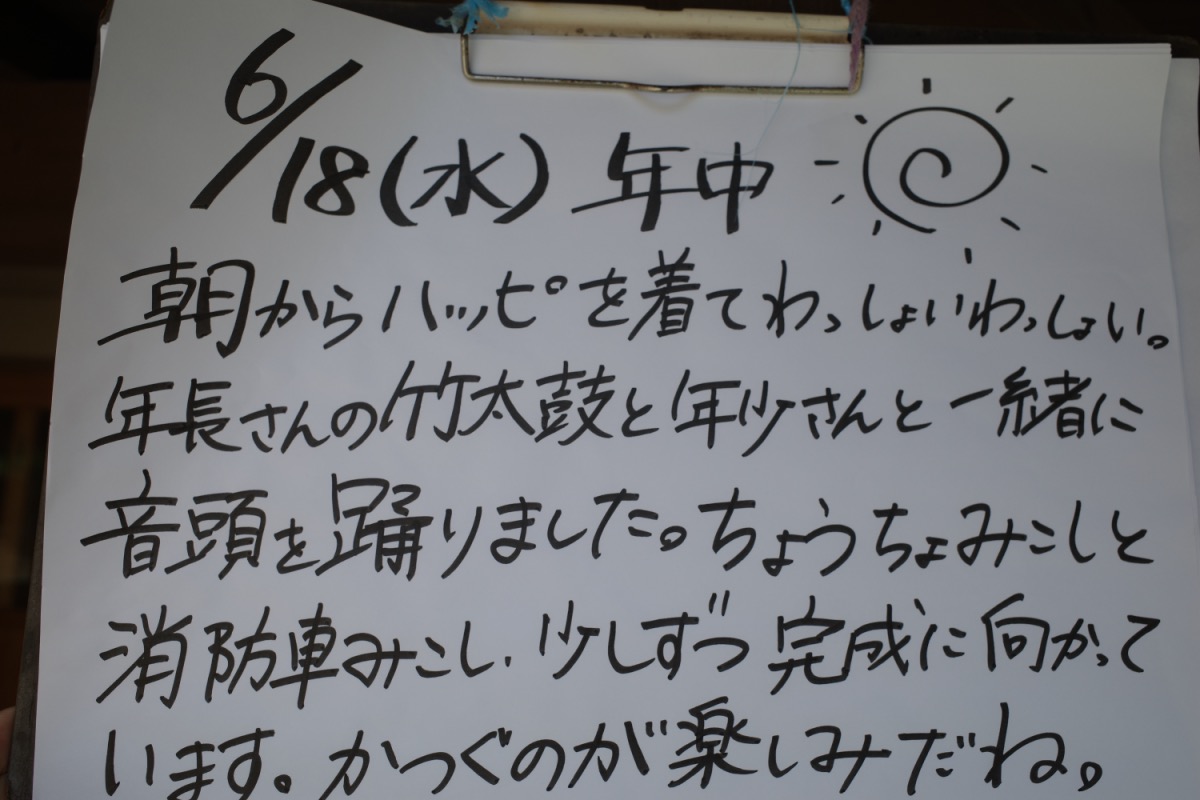 6/18(水) 年中
朝からハッピを着てわっしょいわっしょい。
年長さんの竹太鼓と年少さんと一緒に
音頭を踊りました。ちょうちょみこしと
消防車みこし、少しずつ完成に向かって
います。かつぐのが楽しみだね。